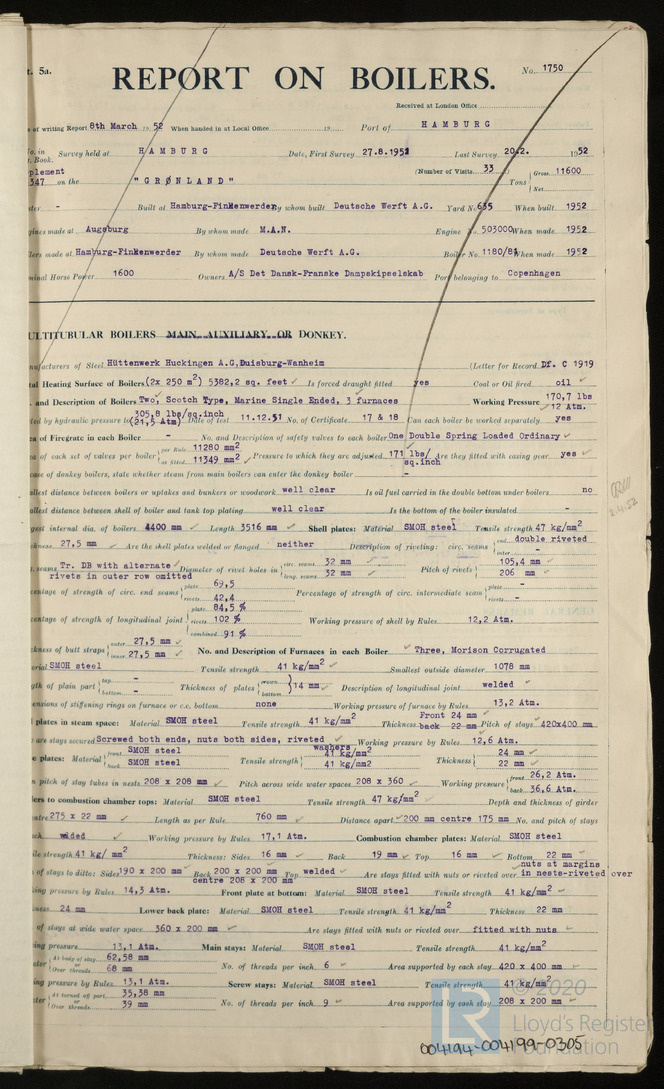 t. 5a.
REPORT ON BOILERS.
No. 1750
Received at London Office
of writing Report 8th March 1952 When handed in at Local Office 19 Port of HAMBURG
No. in Survey held at HAMBURG Date, First Survey 27.8.1951 Last Survey 20.2. 1952
. Book.
plement (Number of Visits 33
347 on the "GRØNLAND" Tons Gross 11600
Net
- Built at Hamburg-Finkenwerder By whom built Deutsche Werft A.G. Yard No 635 When built 1952
gines made at Augsburg By whom made M.A.N. Engine No. 503000 When made 1952
lers made at Hamburg-Finkenwerder By whom made Deutsche Werft A.G. Boiler No. 1180/81 When made 1952
minal Horse Power 1600 Owners A/S Det Dansk-Franske Dampskipselskab Port belonging to Copenhagen
ULTITUBULAR BOILERS MAIN, AUXILIARY, OR DONKEY.
nufacturers of Steel Hüttenwerk Huckingen A.G,Duisburg-Wanheim (Letter for Record Df. C 1919
tal Heating Surface of Boilers (2x 250 m2) 5382,2 sq. feet Is forced draught fitted yes Coal or Oil fired oil
. and Description of Boilers Two, Scotch Type, Marine Single Ended, 3 furnaces Working Pressure 170,7 lbs
12 Atm.
305,8 lbs/sq.inch
ted by hydraulic pressure to (21,5 Atm) Date of test 11.12.51 No. of Certificate 17 & 18 Can each boiler be worked separately yes
ea of Firegrate in each Boiler - No. and Description of safety valves to each boiler One Double Spring Loaded Ordinary
ea of each set of valves per boiler per Rule 11280 mm2
as fitted 11349 mm2 Pressure to which they are adjusted 171 lbs/ Are they fitted with easing gear yes
sq.inch
case of donkey boilers, state whether steam from main boilers can enter the donkey boiler -
allest distance between boilers or uptakes and bunkers or woodwork well clear Is oil fuel carried in the double bottom under boilers no
allest distance between shell of boiler and tank top plating well clear Is the bottom of the boiler insulated -
gest internal dia. of boilers 4400 mm Length 3516 mm Shell plates: Material SMOH steel Tensile strength 47 kg/mm2
kness 27,5 mm Are the shell plates welded or flanged neither Description of riveting: circ. seams end double riveted
inter -
. seams Tr. DB with alternate Diameter of rivet holes in circ. seams 32 mm Pitch of rivets 105,4 mm
rivets in outer row omitted long. seams 32 mm 206 mm
centage of strength of circ. end seams plate 69,5 Percentage of strength of circ. intermediate seam plate -
rivets 42,4 rivets -
centage of strength of longitudinal joint plate 84,5 %
rivets 102 % Working pressure of shell by Rules 12,2 Atm.
combined 91 %
ckness of butt straps outer 27,5 mm
inner 27,5 mm No. and Description of Furnaces in each Boiler Three, Morison Corrugated
erial SMOH steel Tensile strength 41 kg/mm2 Smallest outside diameter 1078 mm
gth of plain part top - Thickness of plates crown 14 mm Description of longitudinal joint welded
bottom - bottom
ensions of stiffening rings on furnace or c.c. bottom none Working pressure of furnace by Rules 13,2 Atm.
plates in steam space: Material SMOH steel Tensile strength 41 kg/mm2 Thickness Front 24 mm Pitch of stays 420x400 mm
back 22 mm
are stays secured Screwed both ends, nuts both sides, riveted washers Working pressure by Rules 12,6 Atm.
e plates: Material front SMOH steel Tensile strength 41 kg/mm2 Thickness 24 mm
back SMOH steel 41 kg/mm2 22 mm
n pitch of stay tubes in nests 208 x 208 mm Pitch across wide water spaces 208 x 360 Working pressure front 26,2 Atm.
back 36,6 Atm.
ders to combustion chamber tops: Material SMOH steel Tensile strength 47 kg/mm2 Depth and thickness of girder
entre 275 x 22 mm Length as per Rule 760 mm Distance apart 200 mm centre 175 mm No. and pitch of stays
ch welded Working pressure by Rules 17,1 Atm. Combustion chamber plates: Material SMOH steel
ile strength 41 kg/ mm2 Thickness: Sides 16 mm Back 19 mm Top 16 mm Bottom 22 mm
of stays to ditto: Sides 190 x 200 mm Back 200 x 200 mm Top welded Are stays fitted with nuts or riveted over nuts at margins
centre 208 x 200 mm in nests-riveted over
ing pressure by Rules 14,3 Atm. Front plate at bottom: Material SMOH steel Tensile strength 41 kg/mm2
ness 24 mm Lower back plate: Material SMOH steel Tensile strength 41 kg/mm2 Thickness 22 mm
of stays at wide water space 360 x 200 mm Are stays fitted with nuts or riveted over fitted with nuts
ing pressure 13,1 Atm. Main stays: Material SMOH steel Tensile strength 41 kg/mm2
eter At body of stay 62,58 mm No. of threads per inch 6 Area supported by each stay 420 x 400 mm
or
Over threads 68 mm
ing pressure by Rules 13,1 Atm. Screw stays: Material SMOH steel Tensile strength 41 kg/mm2
eter At turned off part 35,38 mm No. of threads per inch 9 Area supported by each stay 208 x 200 mm
or
Over threads 39 mm
2.4.52
LR
© 2020
Lloyd's Register
Foundation
004194-004199-0305